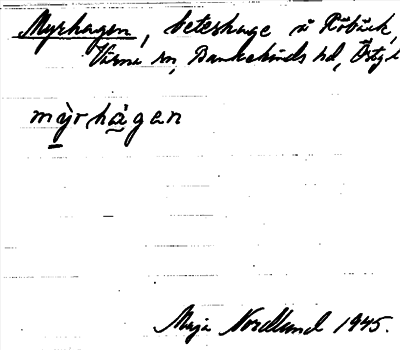 Myrhagen, beteshage å Röbäck,
Värna sn, Bankekinds hd, Östg l
mỳrhàgan
Maja Nordlund 1945.